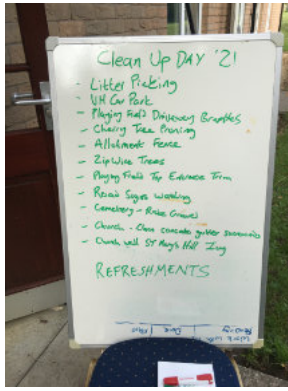 Clean Up DAY '21
- Litter Picking
- VH Car Park
- Playing Field Driveway Brambles
- Cherry Tree Pruning
- Allotment Fence
- Zip Wire Trees
- Playing Field Top Entrance Trim
- Signs
- Cemetery - Gravel
- Church - Clean concrete gutter
- Church wall St Mary's Hill Ivy
REFRESHMENTS